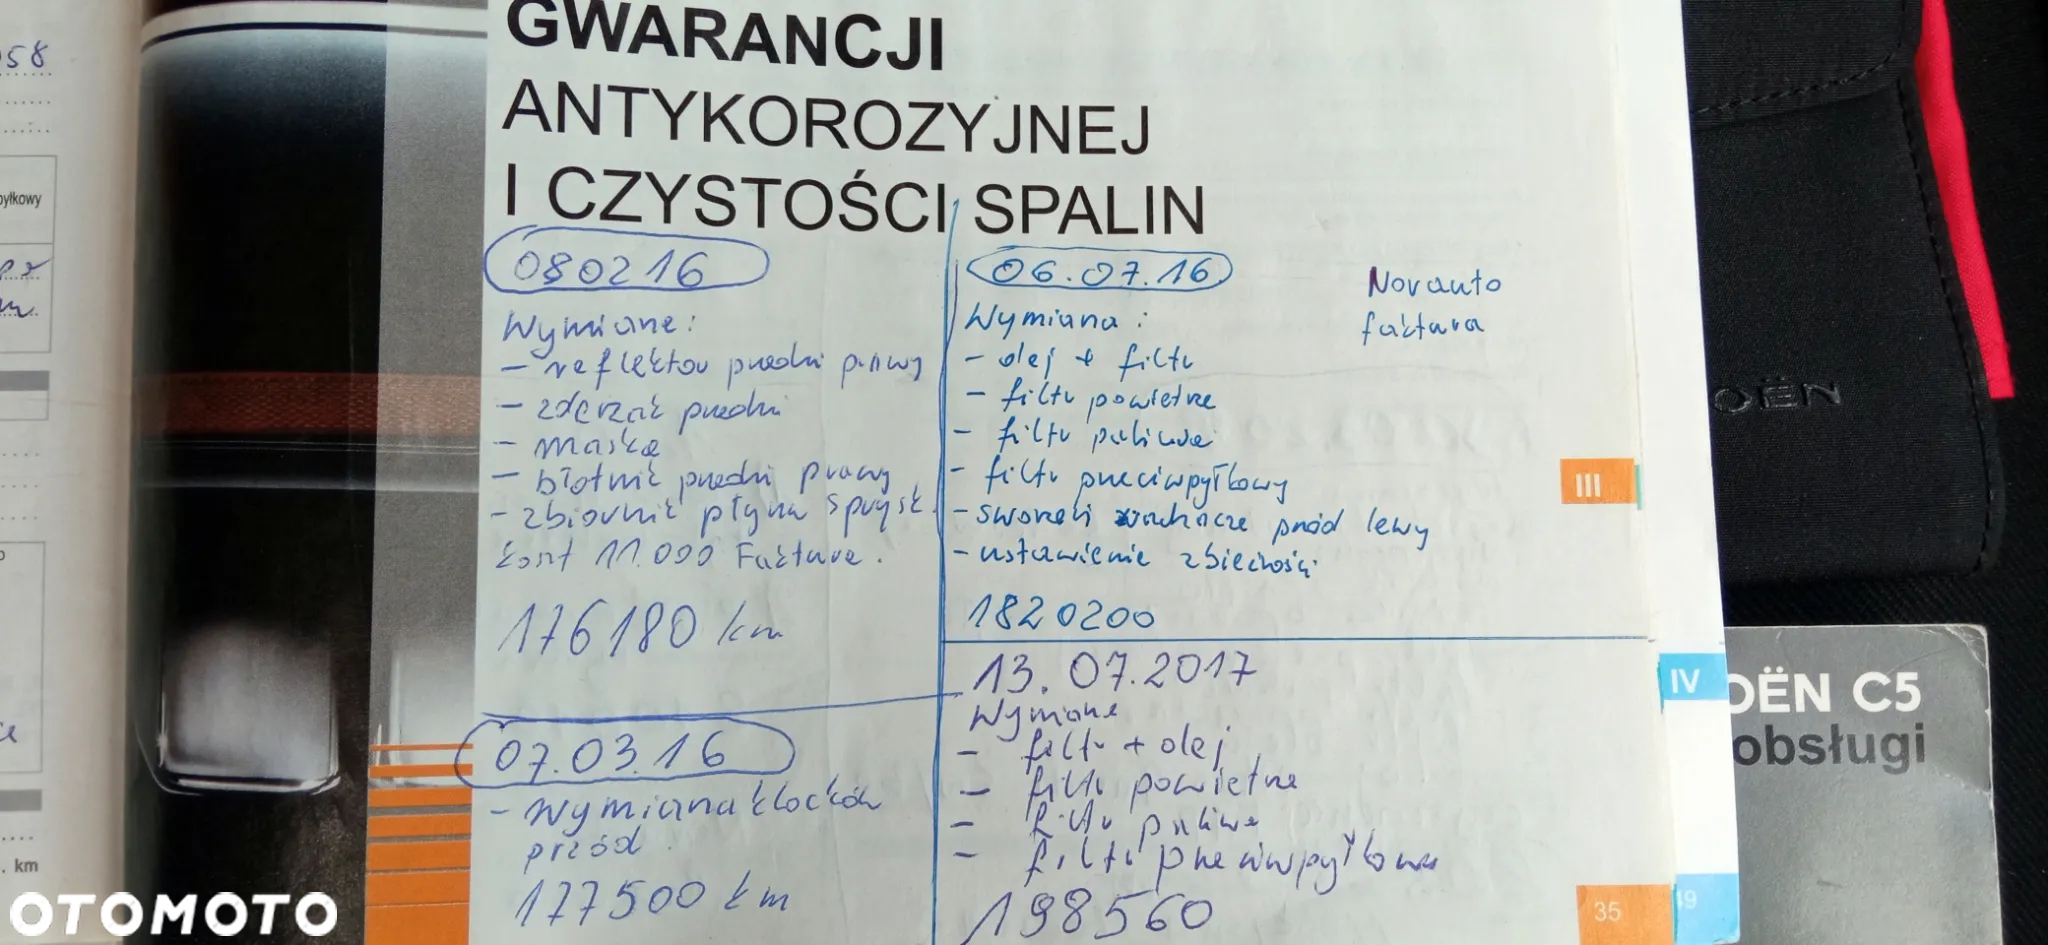 GWARANCJI
ANTYKOROZYJNEJ
I CZYSTOŚCI SPALIN
080216
Wymiane:
- reflektor przedni prawy
- zderzak przedni
- maska
- błotnik przedni prawy
- zbiornik płynu sprysk.
koszt 11.000 Faktura.
176180 km
07.03.16
- Wymiana klocków
przód
177500 km
06.07.16
Novauto
faktura
Wymiana:
- olej + filtr
- filtr powietrza
- filtr paliwa
- filtr przeciwpyłkowy
- sworzeń wahacza przód lewy
- ustawienie zbieżności
1820200
13.07.2017
Wymiana
- filtr + olej
- filtr powietrza
- filtr paliwa
- filtr przeciwpyłkowy
198560
III
IV
35
49
058
pyłkowy
km
OËN
OËN C5
obsługi
OTOMOTO